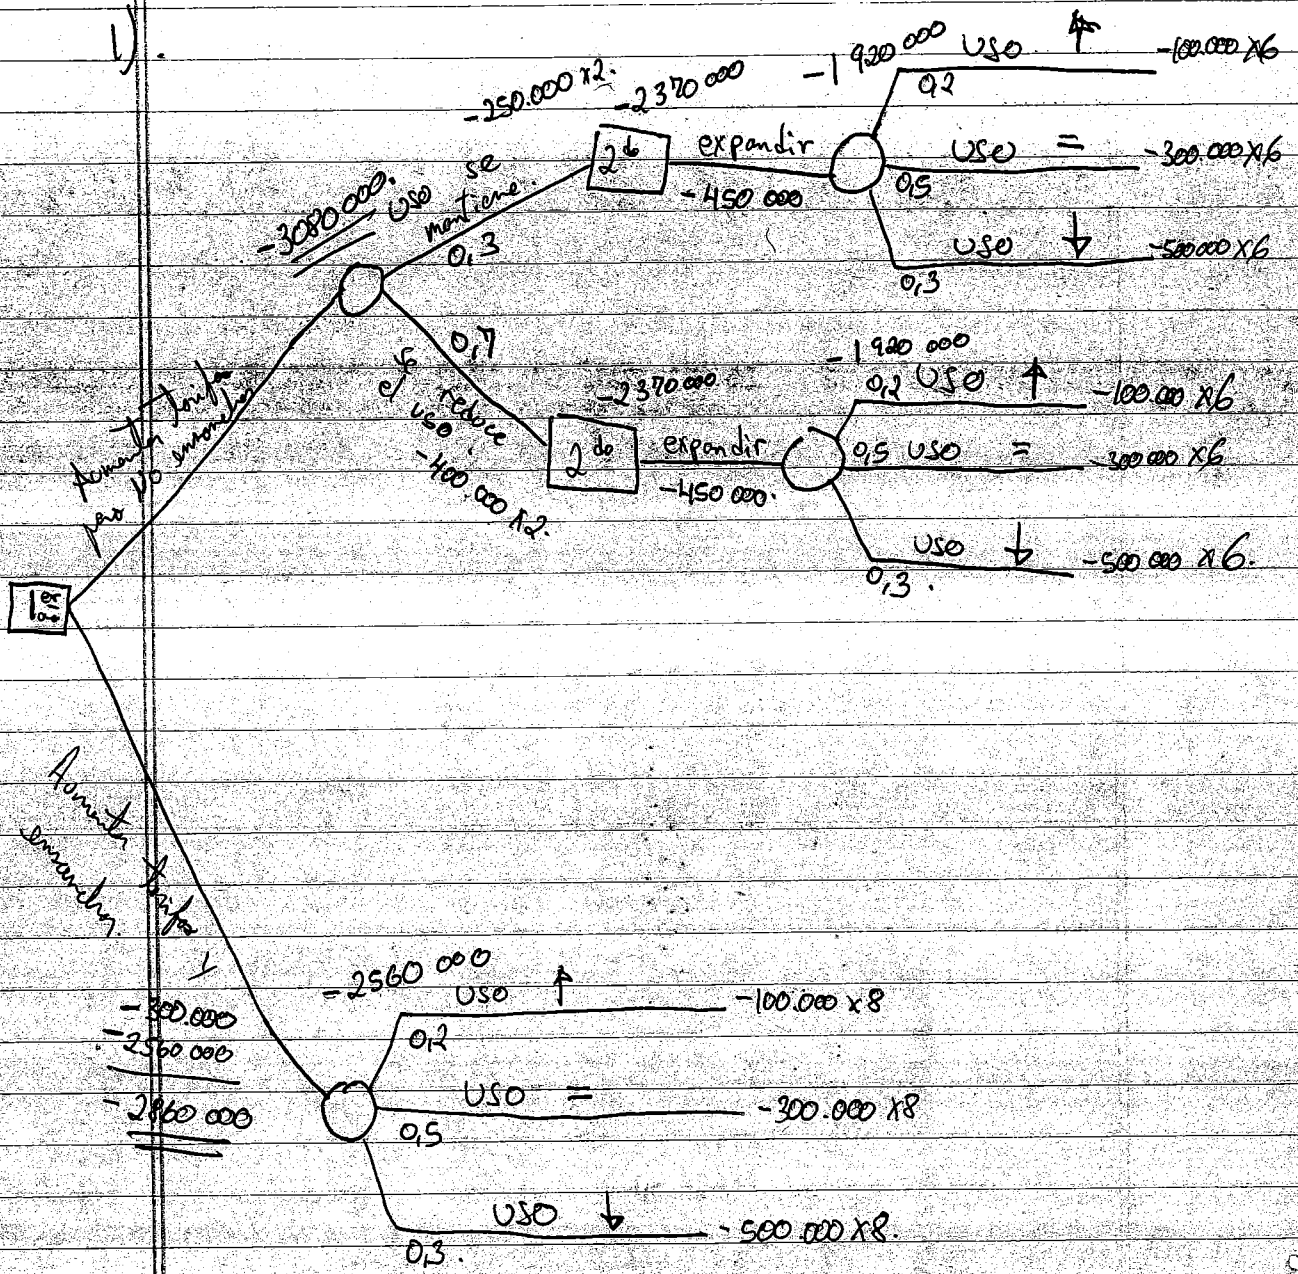 1).
-1 920 000
USO ↑
-100.000 x6
0,2
-250.000 x2.
-2 370 000
2do
expandir
-450 000
USO =
-300.000 x6
0,5
USO ↓
-500 000 x6
0,3
-3080 000.
USO se
mantiene.
0,3
0,7
se reduce
el uso.
-400.000 x2.
-2 370 000
2do
expandir
-450 000.
-1 920 000
0,2 USO ↑
-100.000 x6
0,5 USO =
-300 000 x6
USO ↓
-500 000 x6.
0,3.
Aumentar tarifas
pero no ensanchar
1er
año
Aumentar tarifas y
ensanchar.
-300.000
-2560 000
-2860 000
-2560 000
USO ↑
-100.000 x8
0,2
USO =
-300.000 x8
0,5
USO ↓
-500.000 x8.
0,3.